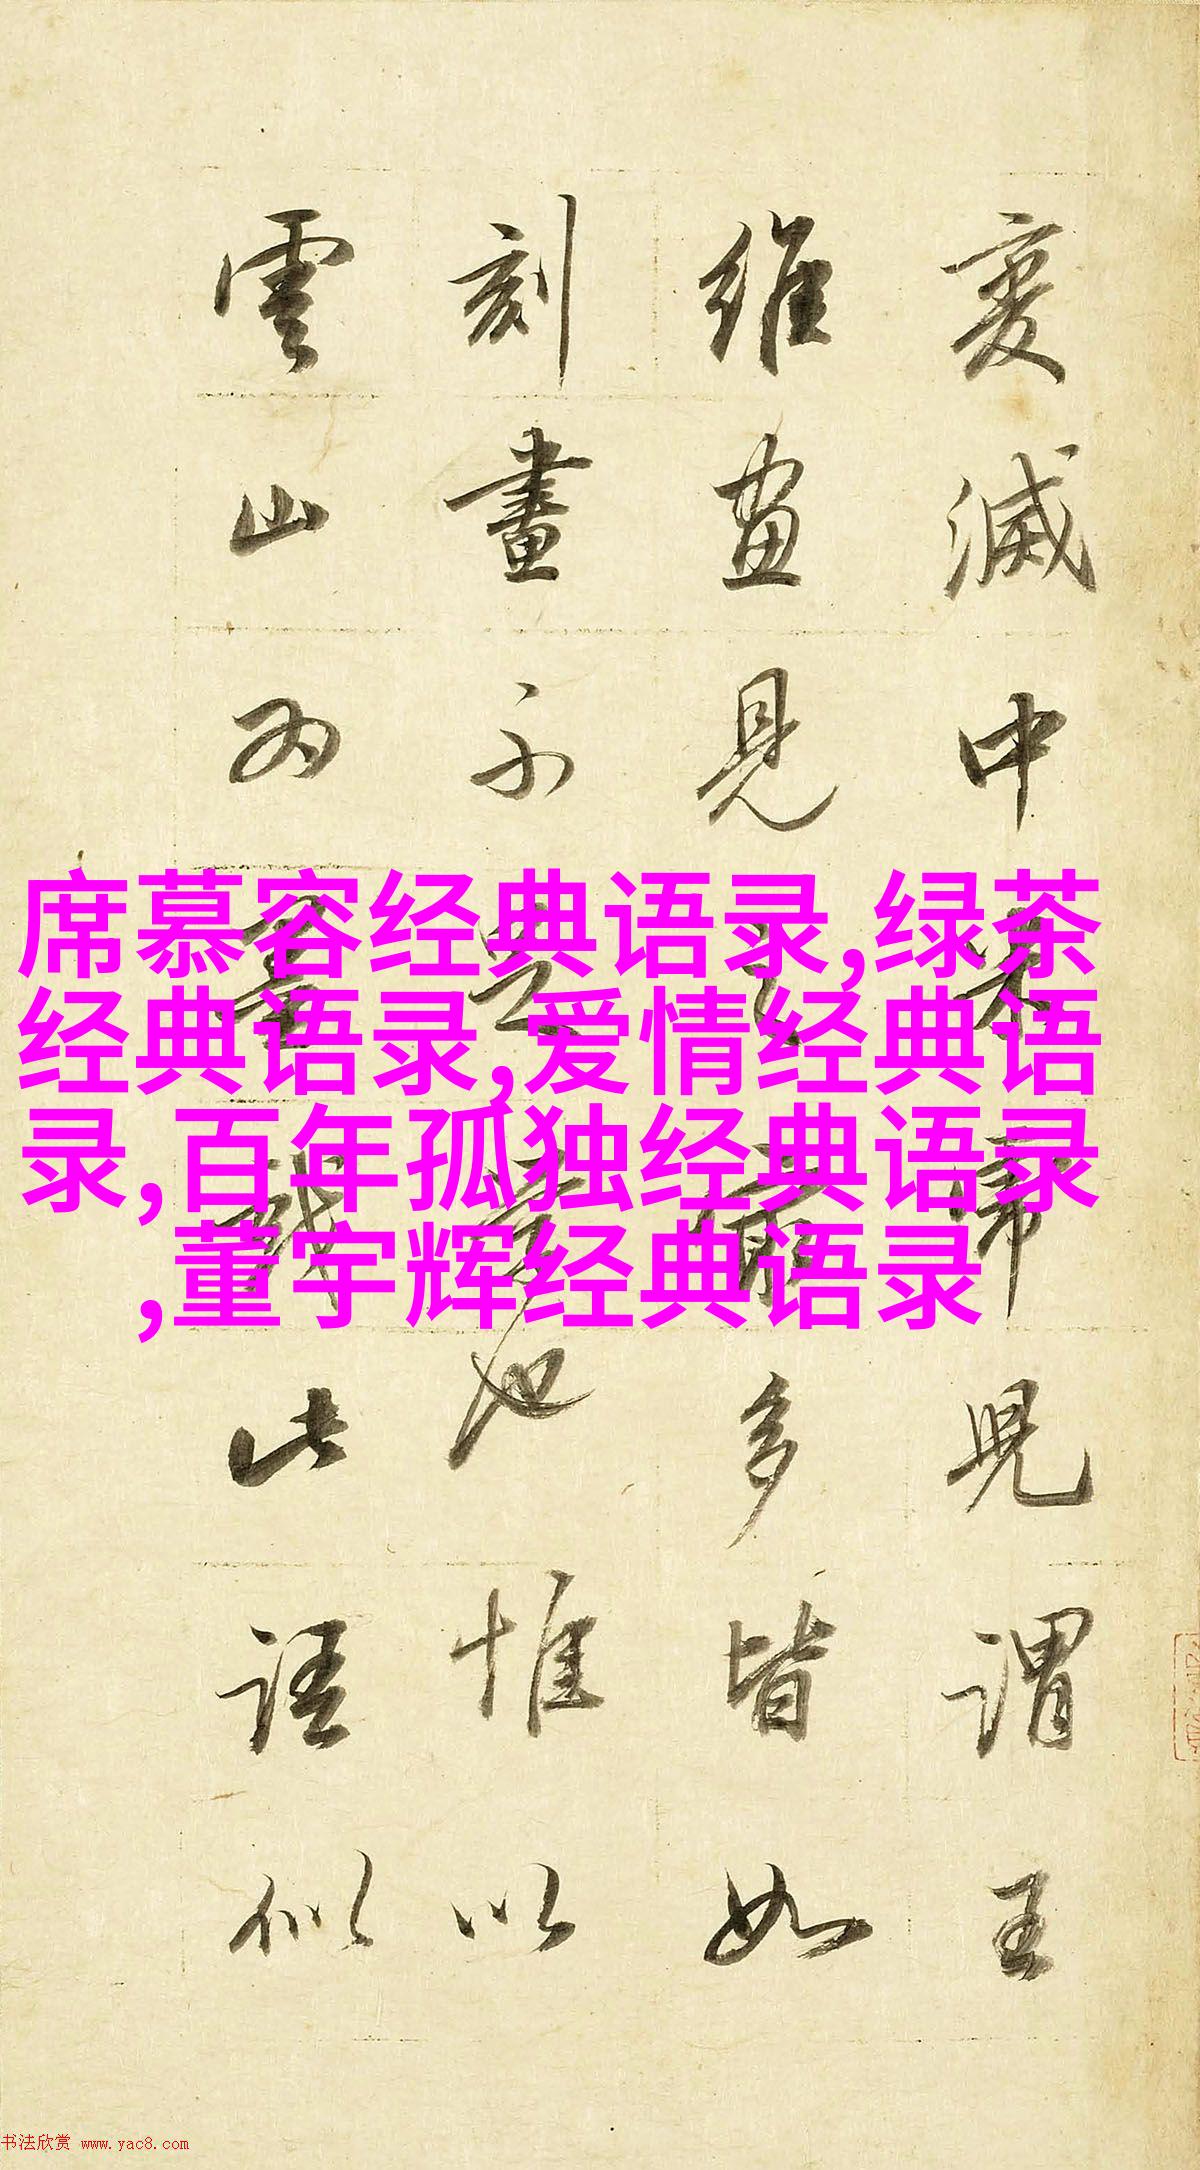 變滅中米見謂王
維畫見之最多皆如
刻畫不足學也惟以
雲山為墨戲此語似
席慕容经典语录,绿茶
经典语录,爱情经典语
录,百年孤独经典语录
,董宇辉经典语录
书法欣赏 www.yac8.com